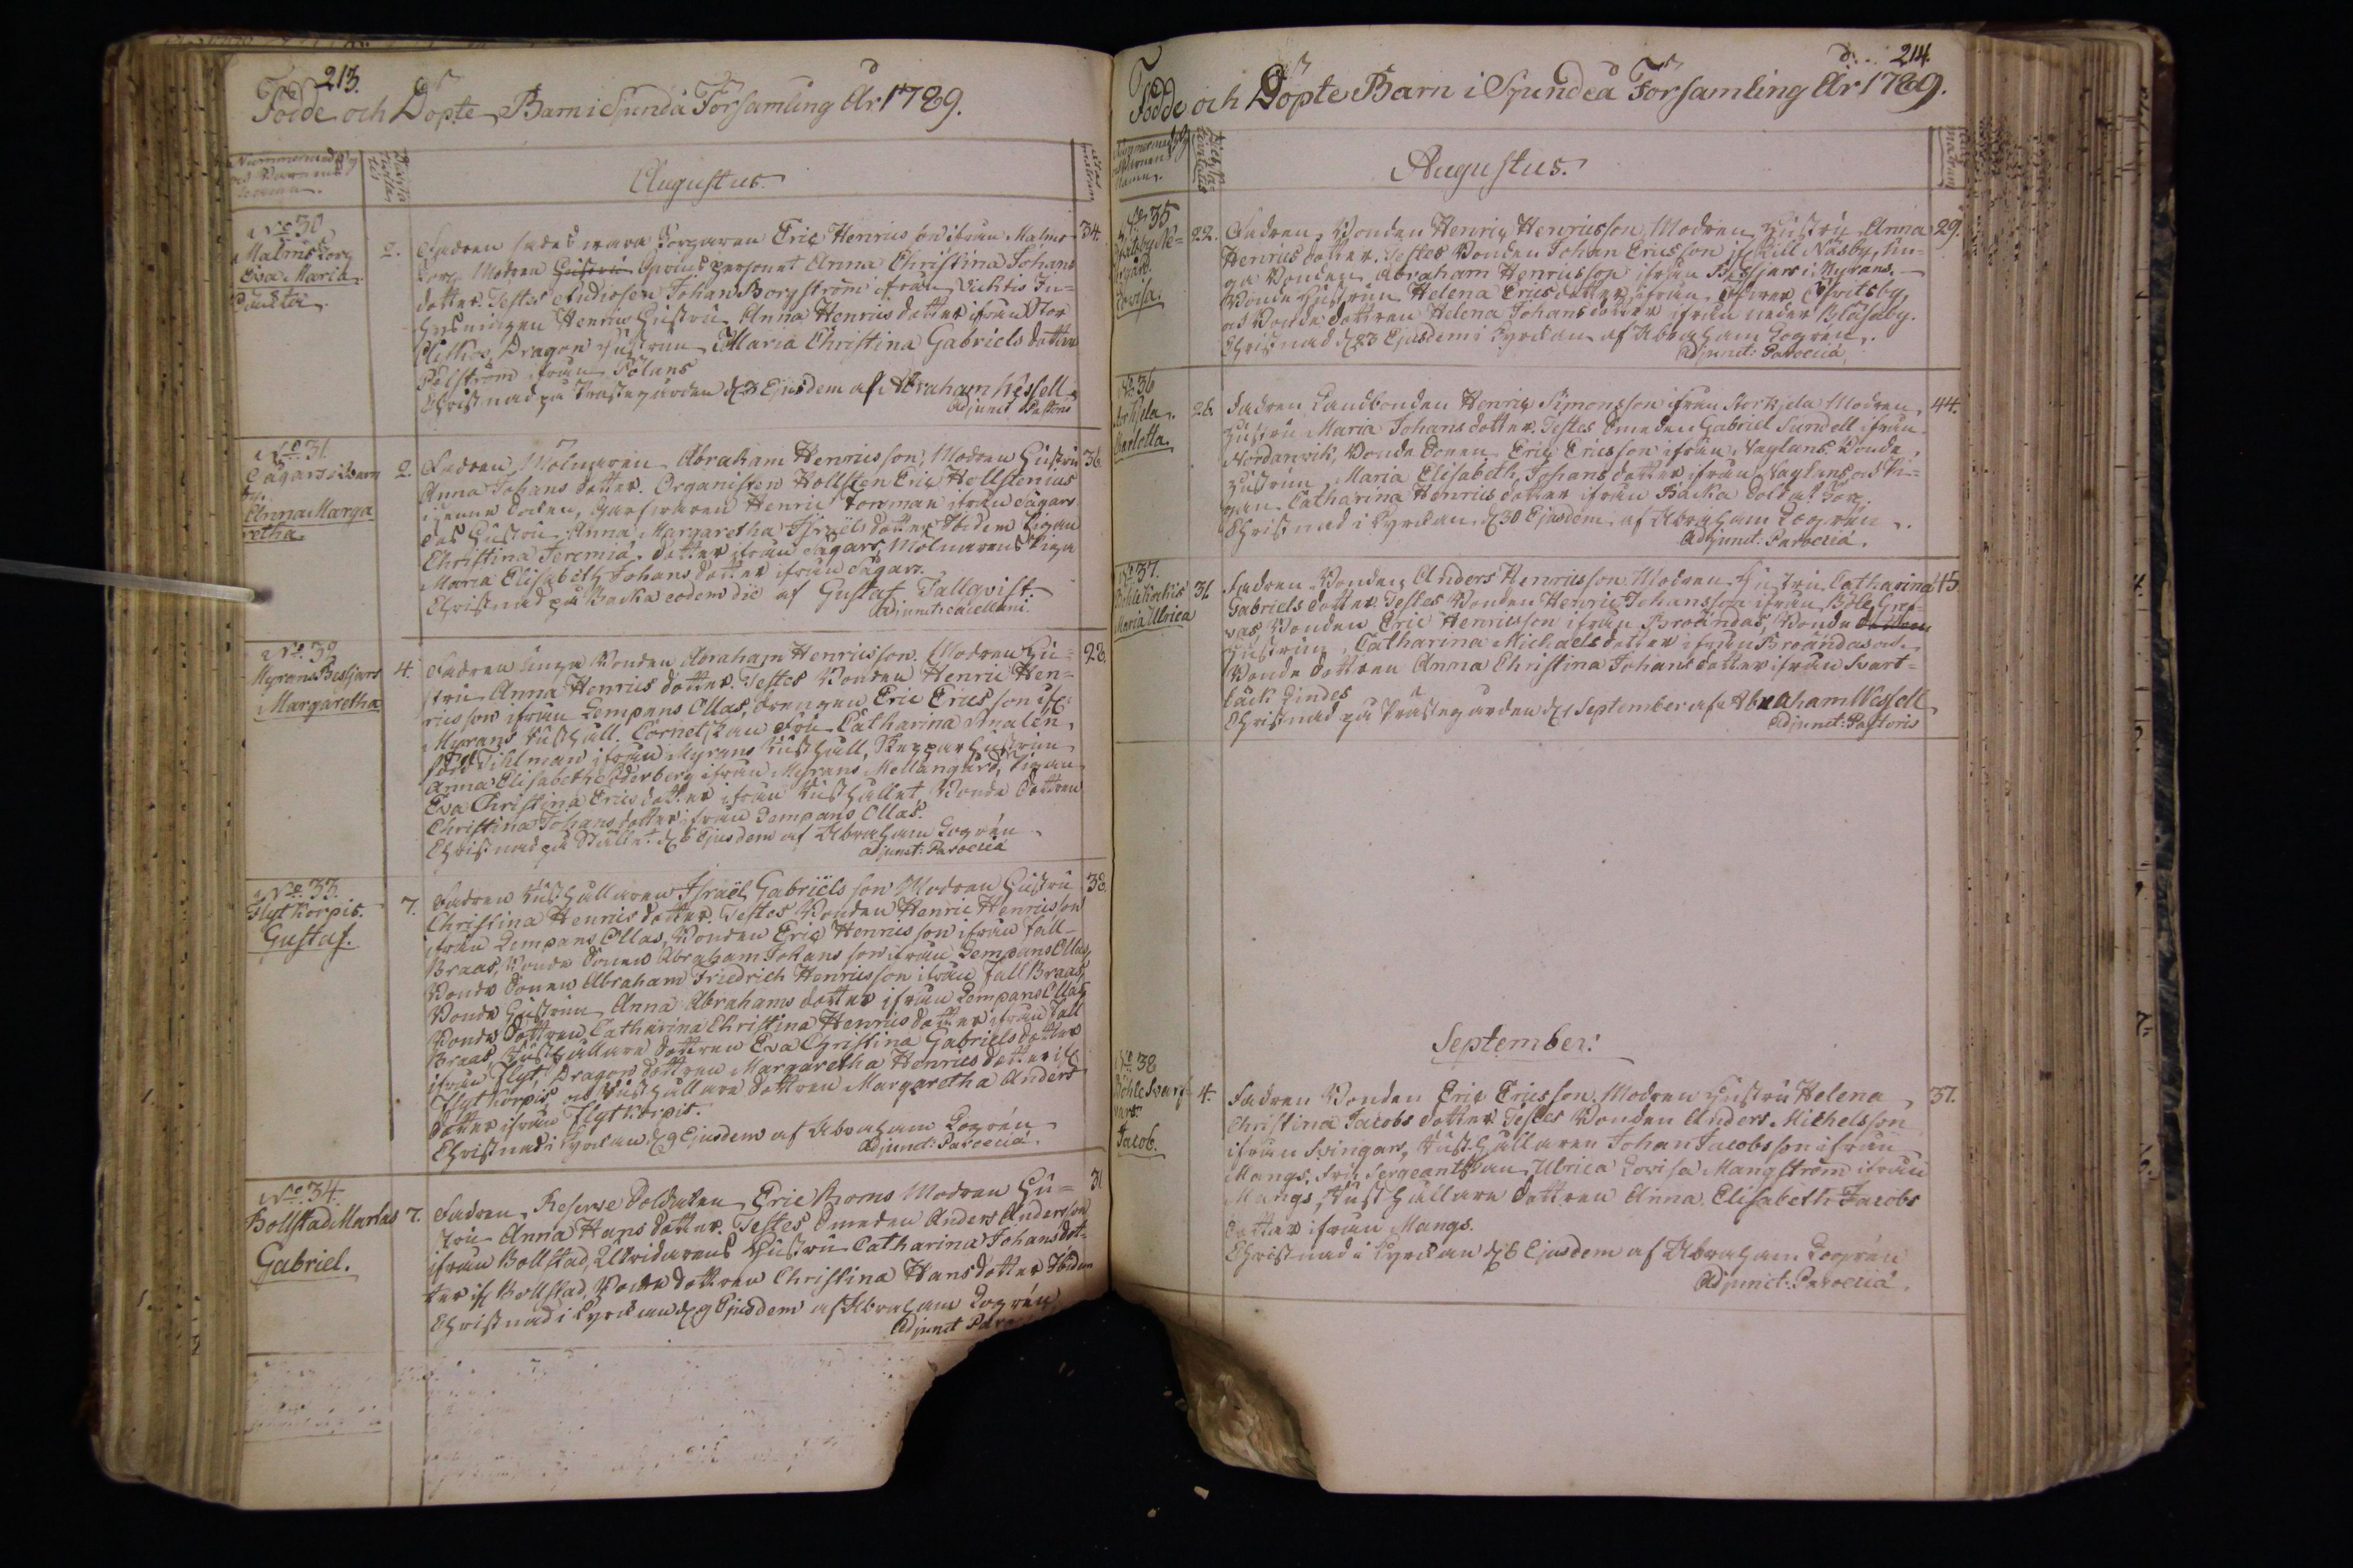 213.
Födde och Döpte Barn i Sjundå Församling År 1789.
Augustus.
No 30
Malms Torp
Eva Maria
2.
Fadren sades wara Torparen Eric Henricsson ifrån Malms
34.
Torp Modren Hustrun Qvins personet Anna Christina Johans
dotter. Testes Studiosen Johan Borgström ifrån
Hysningen Henrics Hustru Anna Henrics dotter ifrån Stor
Dragon Hustrun Maria Christina Gabriels dotter
Pelström ifrån Pölans
Christnad på Prästegården d. 3 Ejusdem af Abraham Wessell
Adjunct Pastoris
No 31.
Anna Marga
retha.
2.
Fadren Mölnaren Abraham Henricsson, Modren Hustru
36.
Anna Johans dotter. Organisten Eric Hollstenius
Garfwaren Henric Forsman ifrån Sågars
des Hustru Anna Margaretha Israels dotter Ibidem Pigan
Christina Jeremiæ dotter ifrån Sågars, Mölnarens Piga
Maria Elisabeth Johans dotter ifrån Sågars.
Christnad på Backa eodem die af Gustaf Tallqvist.
Adjunct: Sacellani.
No. 32
Myrans Bisljars
Margaretha
4.
Fadren Unga Bonden Abraham Henricsson. Modren Hu-
28.
stru Anna Henrics dotter. Testes Bonden Henric Hen-
ricsson ifrån Lempans Ollas, Drengen Eric Ericsson if:
Myrans Rusthåll. Cornetskan Fru Catharina Malen
född Tihlman ifrån Myrans Rusthåll, Hustrun
Anna Elisabeth Söderberg ifrån Myrans Mellangård, Pigan
Eva Christina Erics dotter ifrån Rusthållet Bonde Dottren
Christina Johans dotter ifrån Lempans Ollas.
Christnad på Stället d. 6 Ejusdem af Abraham Logrén
Adjunct: Paroeciæ
No. 33
Flyt Korpis.
Gustaf.
7.
Fadren Rusthållaren Israël Gabriëls son Modren Hustru
38.
Christina Henrics dotter. Testes Bonden Henric Henricsson
ifrån Lempans Ollas, Bonden Eric Henricsson ifrån Fall
Braas, Bonde Sonen Abraham Johansson ifrån Lempans Ollas,
Bonde Sonen Abraham Friedrich Henricsson ifrån Fall Braas,
Bonde Hustrun Anna Abrahams dotter ifrån Lempans Ollas,
Bonde Dottren Catharina Christina Henrics dotter ifrån Fall
Braas Rusthållare dottren Eva Christina Gabriels dotter
ifrån Flyt, Dragon dottren Margaretha Henrics dotter if:
Flyt Korpis, och Rusthållare dottren Margaretha Anders
dotter ifrån Flyt Korpis.
Christnad i Kyrckan d. 9 Ejusdem af Abraham Logrén
Adjunct: Paroeciæ.
No. 34.
Bollstad Marlas
Gabriel.
7.
Fadren Reserve Soldaten Eric Roms Modren Hu-
31
stru Anna Hans dotter. Testes Smeden Anders Andersson
ifrån Bollstad, Utridarens Hustru Catharina Johans dot-
ter if: Bollstad, Bonde dottren Christina Hans dotter Ibidem
Christnad i Kyrckan d. 9 Ejusdem af Abraham Logrén
Adjunct Par
214.
Födde och Döpte Barn i Sjundeå Församling År 1789.
Augustus.
No 35
Lovisa.
22.
Fadren, Bonden Henric Henricsson, Modren Hustru Anna
29.
Henrics dotter. Testes Bonden Johan Ericsson if: Kill Näsby, Un-
ga Bonden Abraham Henricsson ifrån Bisljars i Myrans.
Bonde Hustrun Helena Erics dotter, ifrån öfwer
och Bonde dottren Helena Johans dotter ifrån neder Blåsaby.
Christnad d. 23 Ejusdem i Kyrckan af Abraham Logrén.
Adjunct: Paroeciæ.
No. 36
Storkjela.
Charlotta.
26.
Fadren Landbonden Henric Simonsson ifrån Storkjela Modren,
44.
Hustru Maria Johans dotter. Testes Smeden Gabriel Sundell ifrån
Nordanwik, Bonde Sonen, Eric Ericsson ifrån Waglans. Bonde
Hustrun Maria Elisabeth Johans dotter ifrån Waglans och Pi-
gan Catharina Henrics dotter ifrån Backa Soldat Torp.
Christnad i Kyrckan d. 30 Ejusdem af Abraham Logrén.
Adjunct: Paroeciæ.
No. 37.
Maria Ulrica
31.
Fadren Bonden Anders Henricsson. Modren Hustru Catharina
45.
Gabriels dotter. Testes Bonden Henric Johansson ifrån Böle Gre-
vas Bonden Eric Henricsson ifrån Broändas, Bonde dottren
Hustrun, Catharina Michaels dotter ifrån Broändas och
Bonde dottren Anna Christina Johans dotter ifrån Svart-
bäck Lindes
Christnad på Prästegården d. 1 September af Abraham Wessell
Adjunct: Pastoris
September:
No 38
Jacob.
4.
Fadren Bonden Eric Ericsson. Modren Hustru Helena
37.
Christina Jacobs dotter. Testes Bonden Anders Michelsson
ifrån Svingars, Rusthållaren Johan Jacobsson ifrån
Mangs, Fru Sergeantskan Ulrica Lovisa Mangström ifrån
Mangs, Rusthållare dottren Anna Elisabeth Jacobs
dotter ifrån Mangs.
Christnad i Kyrckan d. 6 Ejusdem af Abraham Logrén
Adjunct: Paroeciæ.